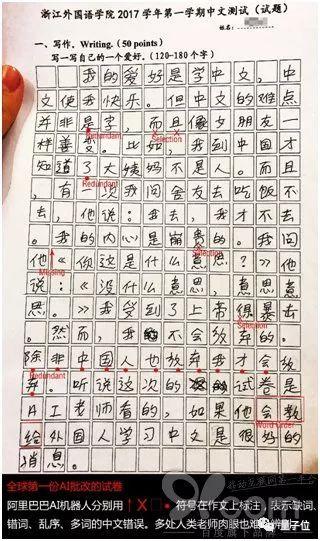 浙江外国语学院2017学年第一学期中文测试（试题）
一、写作。Writing.（50 points）
写一写自己的一个爱好。（120-180个字）
我的爱好是学中文，中
文使我快乐。但中文的难点
并非是字，而且像女朋友一
Redundant
Selection
样善变。比如，我到中国才
知道了大姨妈不是人。而且
Redundant
，有一次我问舍友去吃饭不
去，他说：我去，我才不去
Selection
。我的内心是崩贵的。我问
他《你这是什么意思？》他
Missing
说：《没什么意思，意思意
思。》我受到了上帝很暴击
Selection
。然而，我不会放弃的。
除非中国人也放弃我才会放
Redundant
弃。听说这次的试卷是
AI老师看的，如果他会教
Word Order
给外国人学习中文是很好的
消息。
全球第一份AI批改的试卷
阿里巴巴AI机器人分别用↑X□●符号在作文上标注，表示缺词、
错词、乱序、多词的中文错误。多处人类老师肉眼也难辨别
量子位